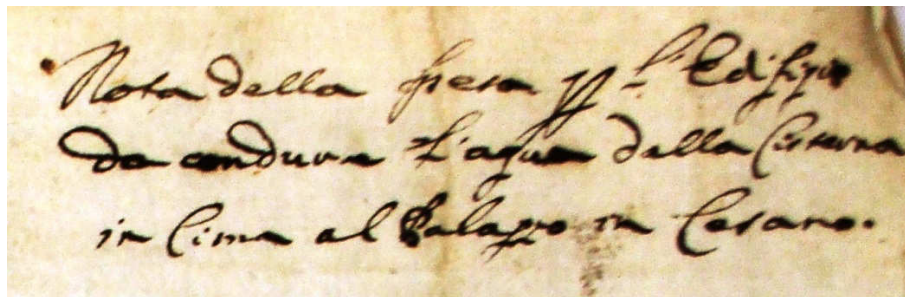 Nota della spesa pp l'Edifizio
da condurre l'aqua della Cisterna
in Cima al Palazzo in Cesano.